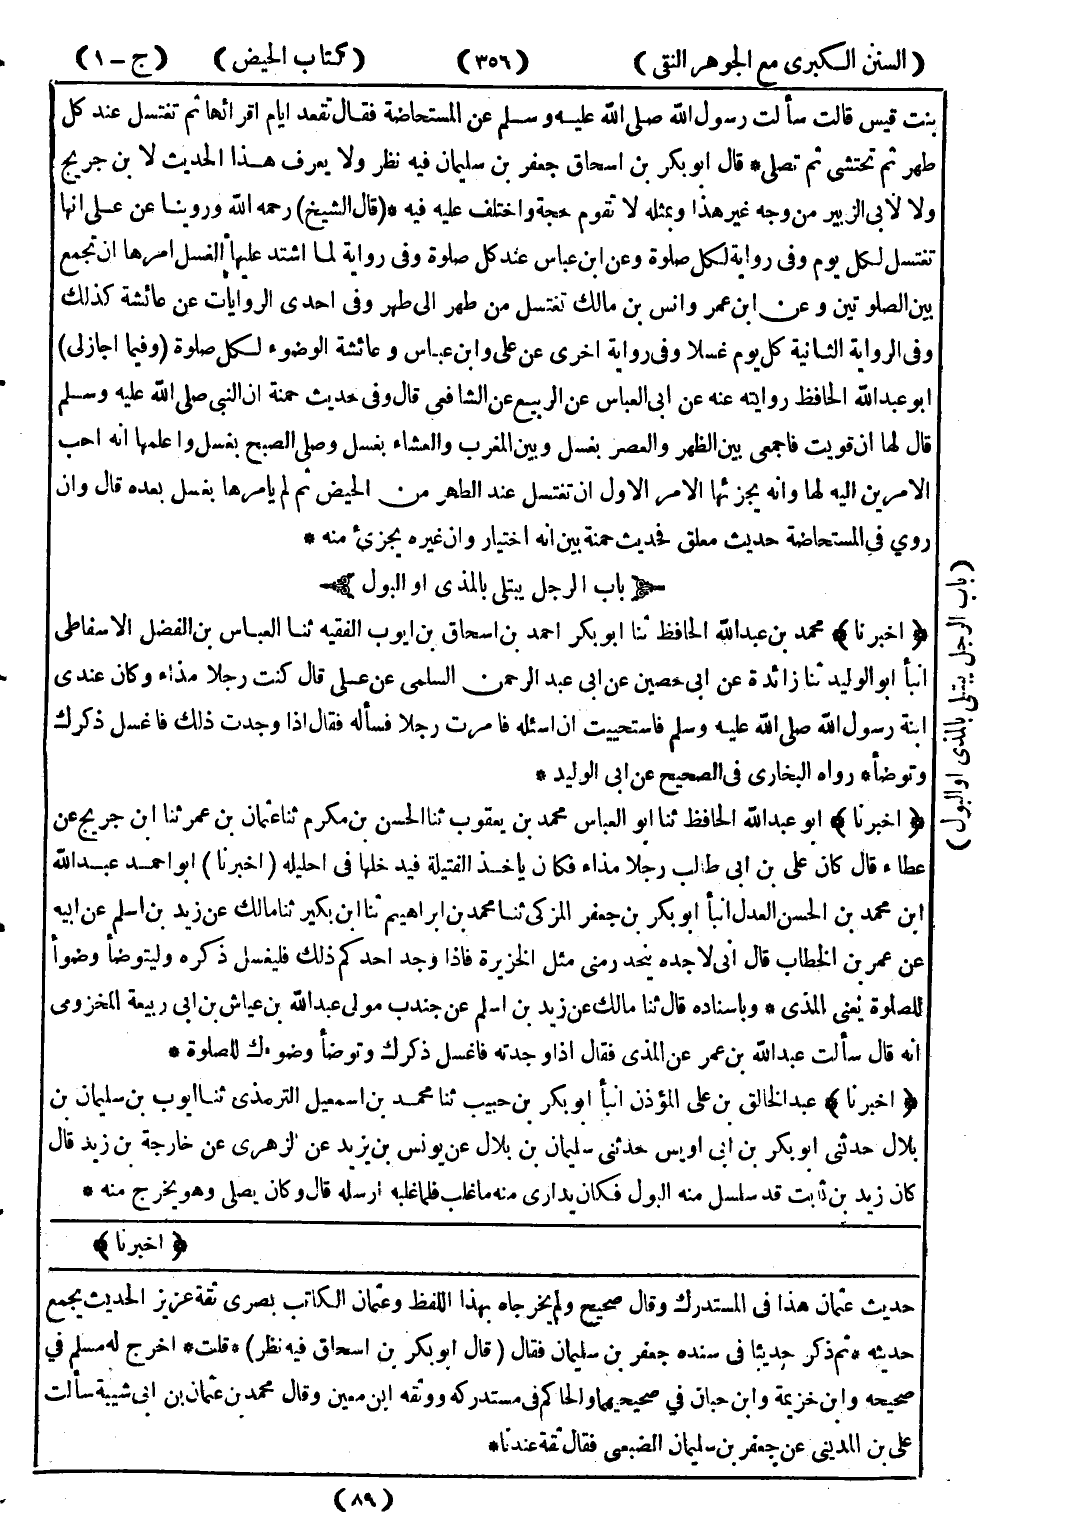 (السنن الكبرى مع الجوهر النقى) (٣٥٦) (كتاب الحيض) (ج - ١)
بنت قيس قالت سألت رسول الله صلى الله عليه وسلم عن المستحاضة فقال تقعد ايام اقرائها ثم تغتسل عند كل
طهر ثم تحتشى ثم تصلى* قال ابوبكر بن اسحاق جعفر بن سليمان فيه نظر ولا يعرف هذا الحديث لا بن جريج
ولا لابى الزبير من وجه غير هذا وبمثله لا تقوم حجة واختلف عليه فيه *(قال الشيخ) رحمه الله وروينا عن على انها
تغتسل لكل يوم وفى رواية لكل صلوة وعن ابن عباس عند كل صلوة وفى رواية لما اشتد عليها الغسل امرها ان تجمع
بين الصلو تين و عن ابن عمر وانس بن مالك تغتسل من طهر الى طهر وفى احدى الروايات عن عائشة كذلك
وفى الرواية الثانية كل يوم غسلا وفى رواية اخرى عن على وابن عباس و عائشة الوضوء لكل صلوة (وفيما اجازلى)
ابو عبد الله الحافظ روايته عنه عن ابى العباس عن الربيع عن الشافعى قال وفى حديث حمنة ان النبى صلى الله عليه وسلم
قال لها ان قويت فاجمعى بين الظهر والعصر بغسل وبين المغرب والعشاء بغسل وصلى الصبح بغسل وا علمها انه احب
الامرين اليه لها وانه يجزئها الامر الاول ان تغتسل عند الطهر من الحيض ثم لم يامرها بغسل بعده قال وان
روي في المستحاضة حديث معلق فحديث حمنة بين انه اختيار وان غيره يجزئ منه *
باب الرجل يبتلى بالمذى او البول
﴿ اخبرنا ﴾ محمد بن عبد الله الحافظ ثنا ابوبكر احمد بن اسحاق بن ايوب الفقيه ثنا العباس بن الفضل الاسفاطى
انبأ ابو الوليد ثنا زائدة عن ابى حصين عن ابى عبد الرحمن السلمى عن على قال كنت رجلا مذاء وكان عندى
ابنة رسول الله صلى الله عليه وسلم فاستحييت ان اسئله فامرت رجلا فسأله فقال اذا وجدت ذلك فاغسل ذكرك
وتوضأ* رواه البخارى فى الصحيح عن ابى الوليد *
﴿ اخبرنا ﴾ ابو عبد الله الحافظ ثنا ابو العباس محمد بن يعقوب ثنا الحسن بن مكرم ثنا عثمان بن عمر ثنا ابن جريج عن
عطاء قال كان على بن ابى طالب رجلا مذاء فكان ياخذ الفتيلة فيدخلها فى احليله (اخبرنا) ابو احمد عبد الله
ابن محمد بن الحسن العدل انبأ ابوبكر بن جعفر المزكى ثنا محمد بن ابراهيم ثنا ابن بكير ثنا مالك عن زيد بن اسلم عن ابيه
عن عمر بن الخطاب قال انى لاجده ينحدر منى مثل الخزيرة فاذا وجد احدكم ذلك فليغسل ذكره وليتوضأ وضوأ
للصلوة يعنى المذى * وباسناده قال ثنا مالك عن زيد بن اسلم عن جندب مولى عبد الله بن عياش بن ابى ربيعة المخزومى
انه قال سألت عبد الله بن عمر عن المذى فقال اذا وجدته فاغسل ذكرك وتوضأ وضوءك للصلوة *
﴿ اخبرنا ﴾ عبد الخالق بن على المؤذن انبأ ابوبكر بن حبيب ثنا محمد بن اسمعيل الترمذى ثنا ايوب بن سليمان بن
بلال حدثنى ابوبكر بن ابى اويس حدثنى سليمان بن بلال عن يونس بن يزيد عن الزهرى عن خارجة بن زيد قال
كان زيد بن ثابت قد سلسل منه البول فكان يدارى منه ما غلب فلما غلبه ارسله قال وكان يصلى وهو يخرج منه *
﴿ اخبرنا ﴾
حديث عثمان هذا فى المستدرك وقال صحيح ولم يخرجاه بهذا اللفظ وعثمان الكاتب بصرى ثقة عزيز الحديث يجمع
حديثه * ثم ذكر حديثا فى سنده جعفر بن سليمان فقال (قال ابوبكر بن اسحاق فيه نظر) * قلت* اخرج له مسلم في
صحيحه وابن خزيمة وابن حبان في صحيحيهما والحاكم فى مستدركه ووثقه ابن معين وقال محمد بن عثمان بن ابى شيبة سألت
على بن المدينى عن جعفر بن سليمان الضبعى فقال ثقة عندنا*
(باب الرجل يبتلى بالمذى او البول)
(٨٩)